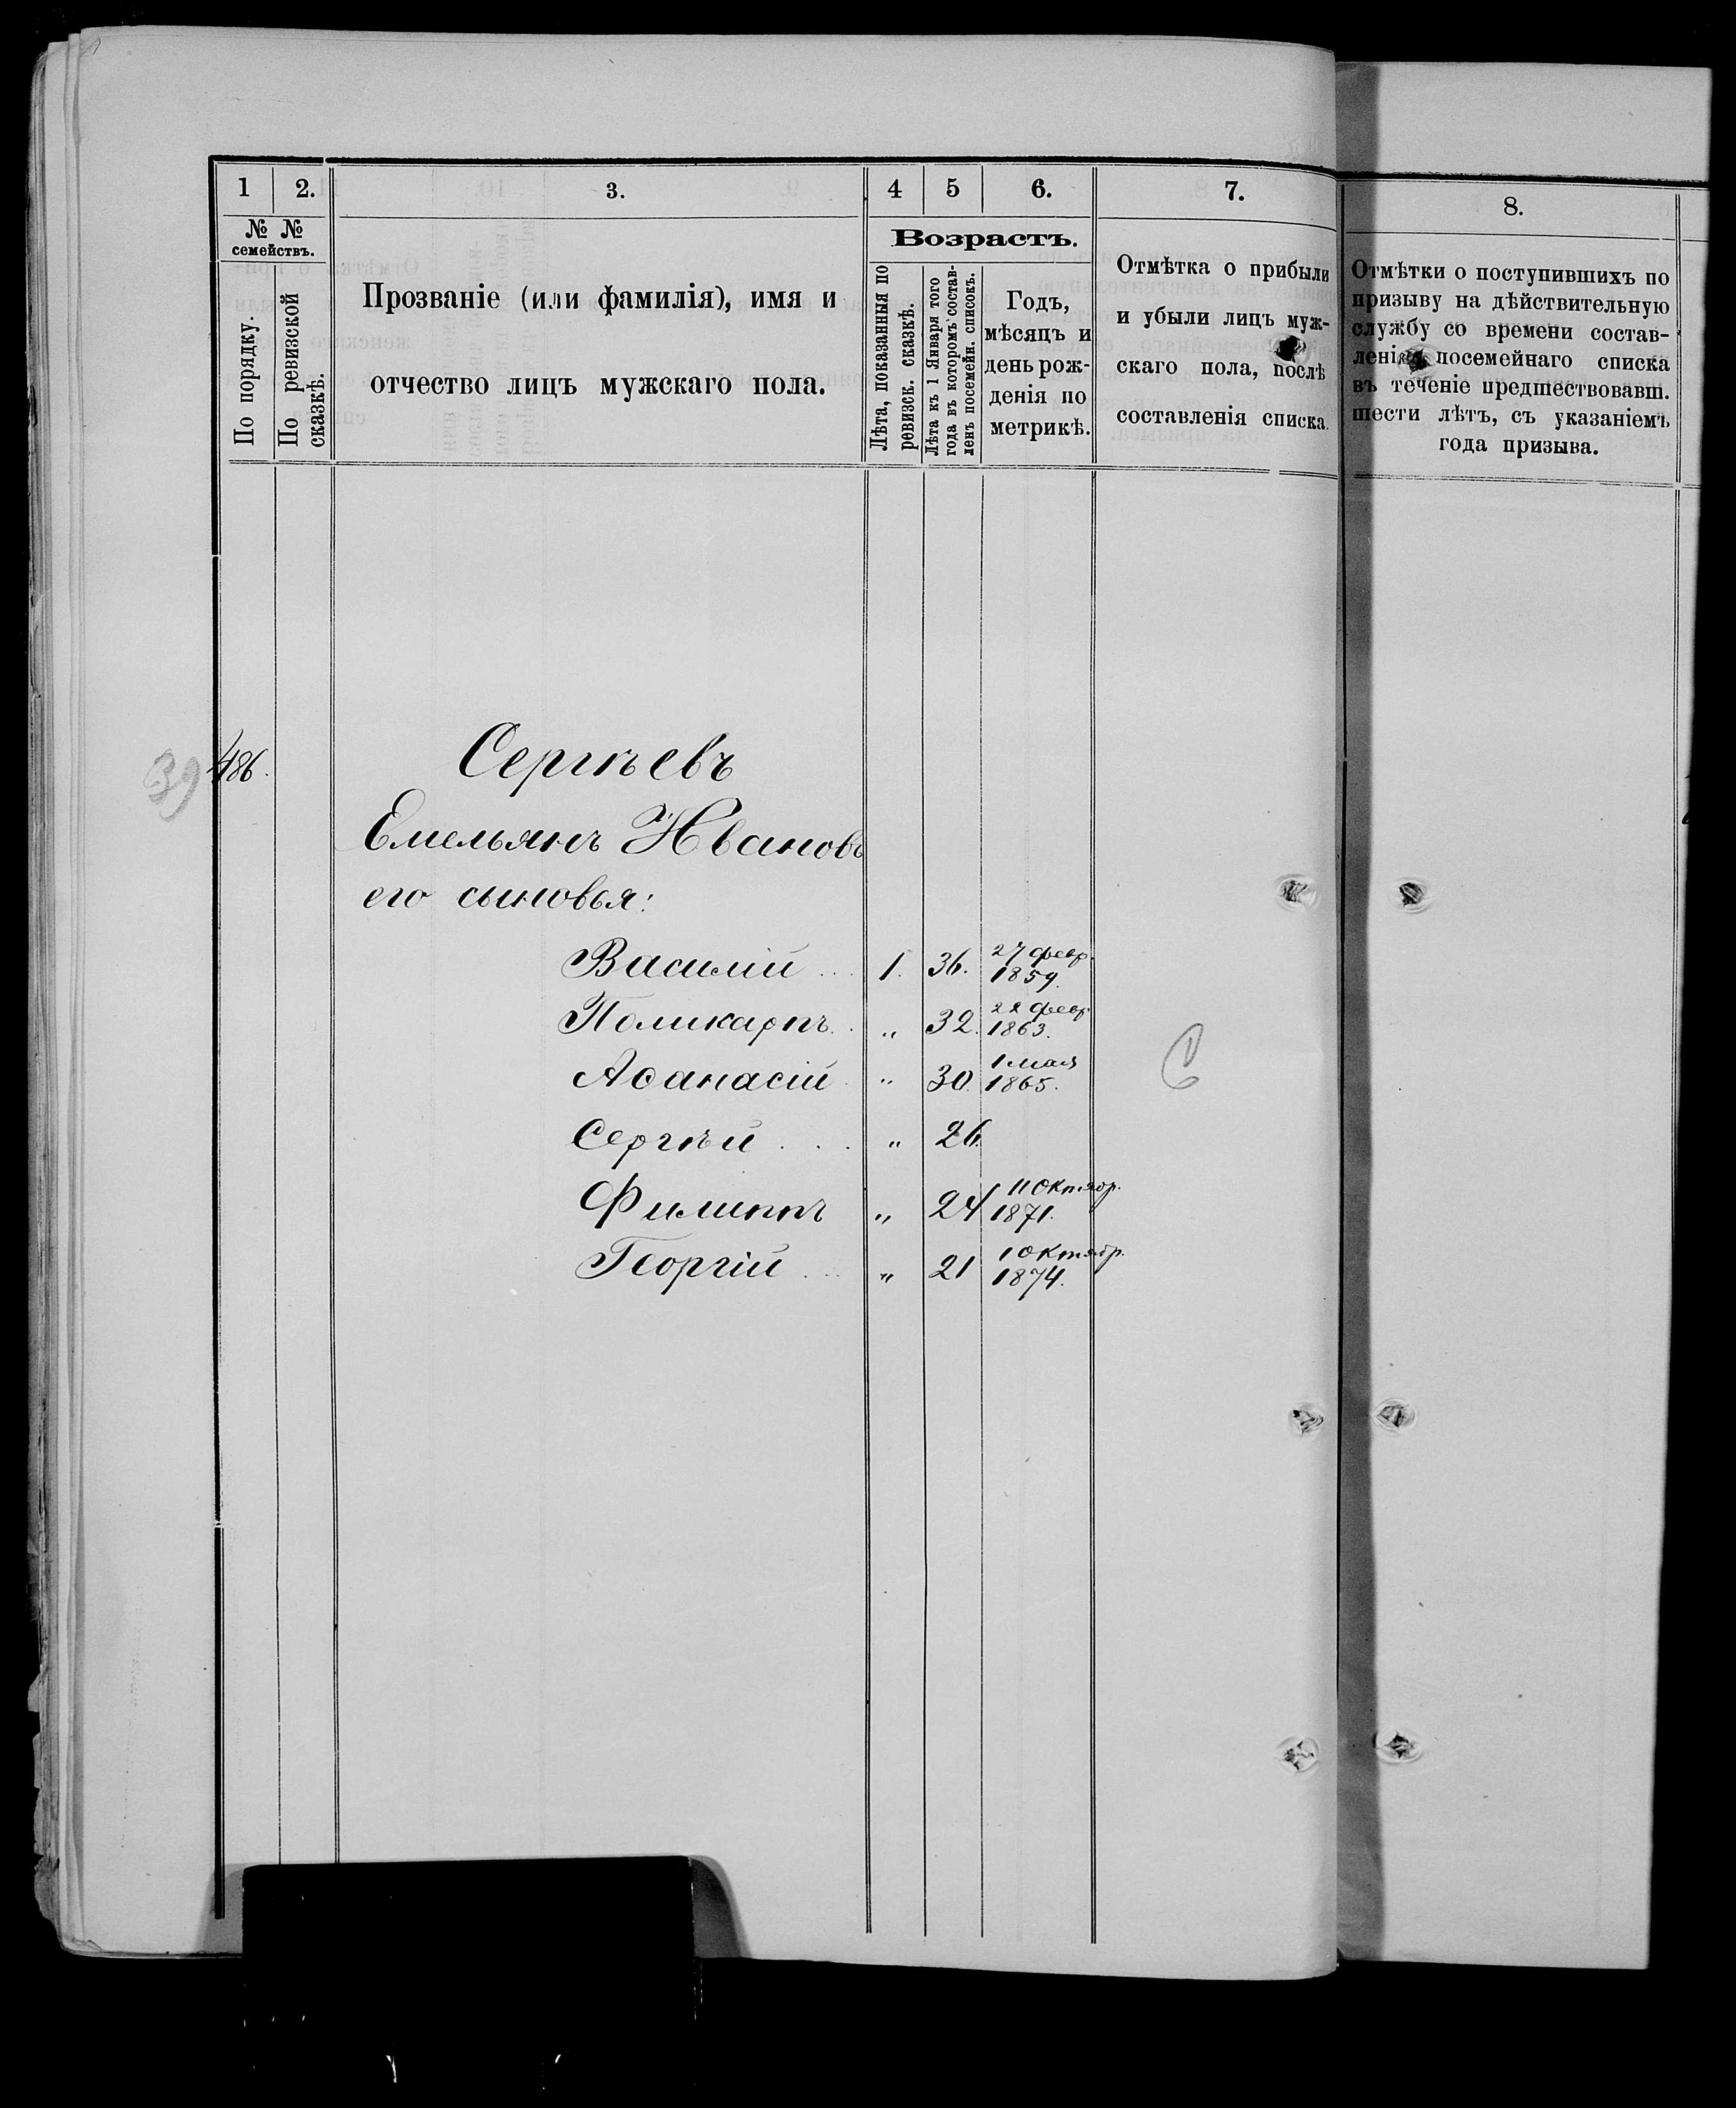 1 2. 3. 4 5 6. 7. 8.
№ № семействъ.
По порядку.
По ревизской сказкѣ.
Прозваніе (или фамилія), имя и
отчество лицъ мужскаго пола.
Возрастъ.
Лѣта, показанныя по
ревизск. сказкѣ.
Лѣта къ 1 Января того
года въ которомъ состав-
ленъ посемейн. списокъ.
Годъ,
мѣсяцъ и
день рож-
денія по
метрикѣ.
Отмѣтка о прибыли
и убыли лицъ муж-
скаго пола, послѣ
составленія списка.
Отмѣтки о поступившихъ по
призыву на дѣйствительную
службу со времени состав-
ленія посемейнаго списка
въ теченіе предшествовавш.
шести лѣтъ, съ указаніемъ
года призыва.
39 486. Сергѣевъ
Емельянъ Ивановъ
его сыновья:
Василій ... 1. 36. 27 февр. 1859.
Поликарпъ. . „ 32. 22 февр. 1863.
Аѳанасій . „ 30. 1 мая 1865.
Сергѣй . . . „ 26.
Филиппъ „ 24 11 Октябр. 1871.
Георгій ... „ 21 1 Октябр. 1874.